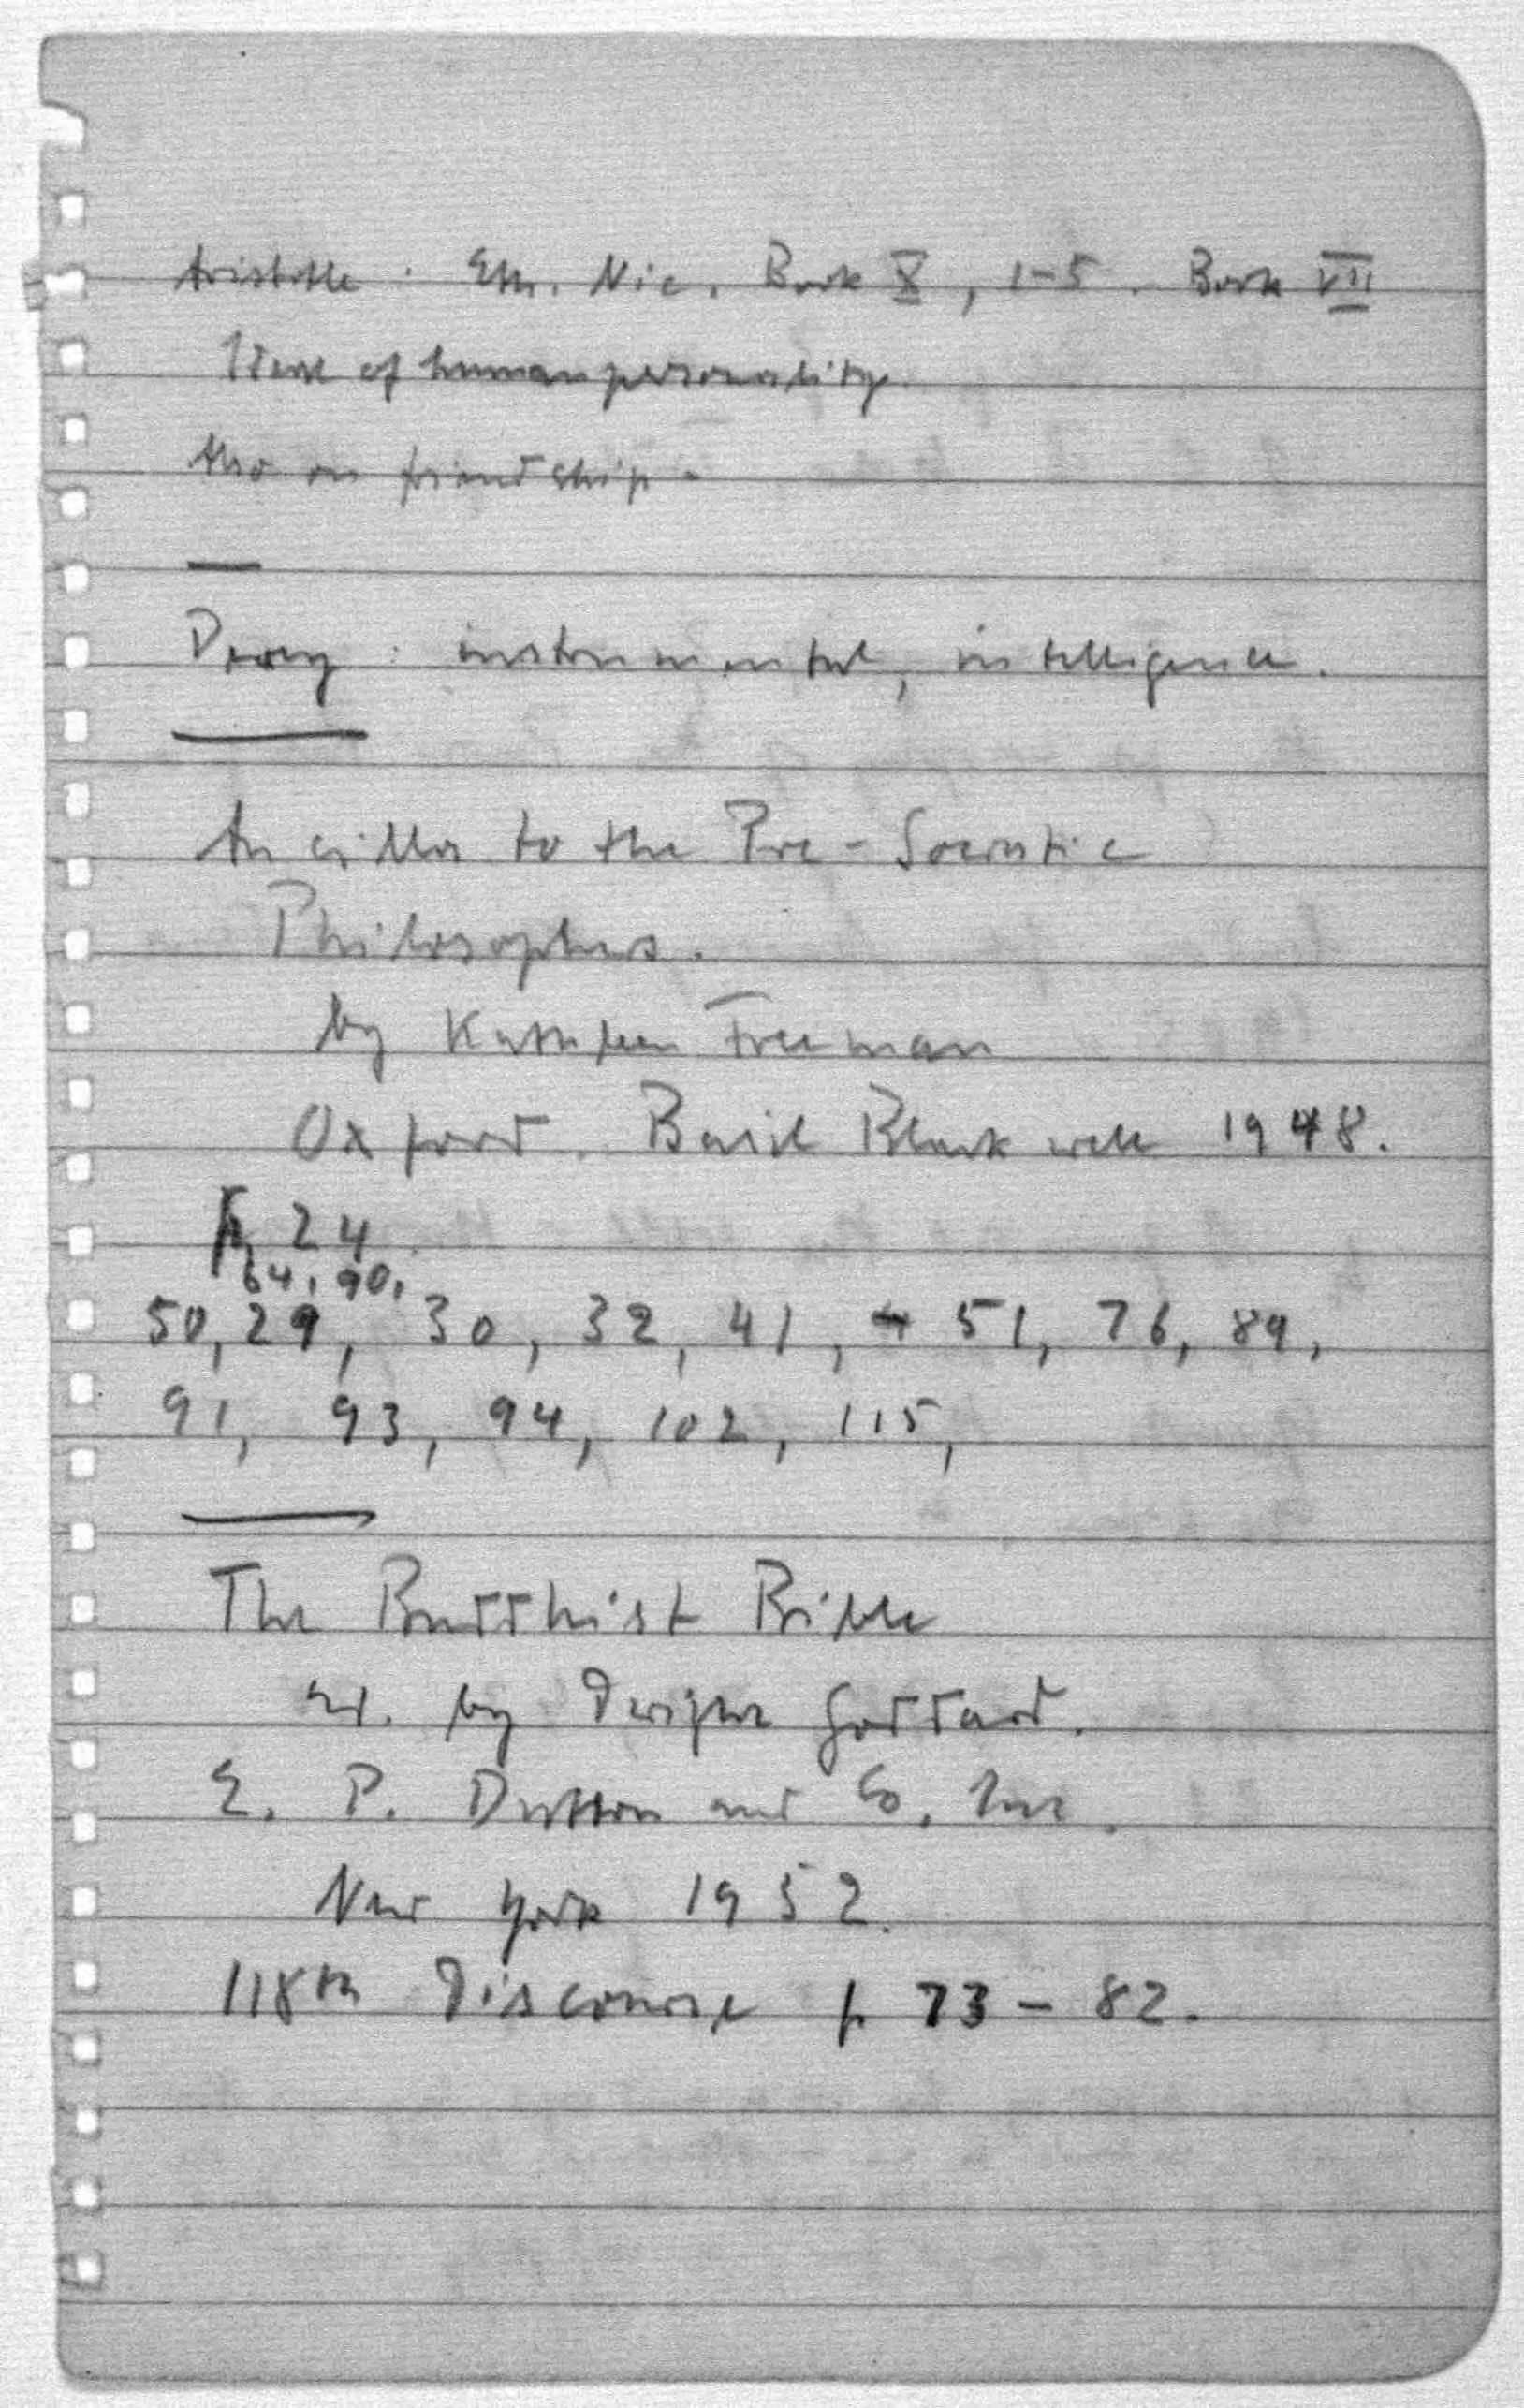 Aristotle : Eth. Nic. Book X, 1-5. Book VII
View of human personality.
Also on friendship.
Dewey : instrumental, intelligence.
Ancilla to the Pre-Socratic
Philosophers.
by Kathleen Freeman
Oxford. Basil Blackwell 1948.
p. 24
64, 90,
50, 29, 30, 32, 41, 51, 76, 89,
91, 93, 94, 102, 115,
The Buddhist Bible
ed. by Dwight Goddard.
E. P. Dutton and Co, Inc.
New York 1952.
118th Discourse p. 73 - 82.